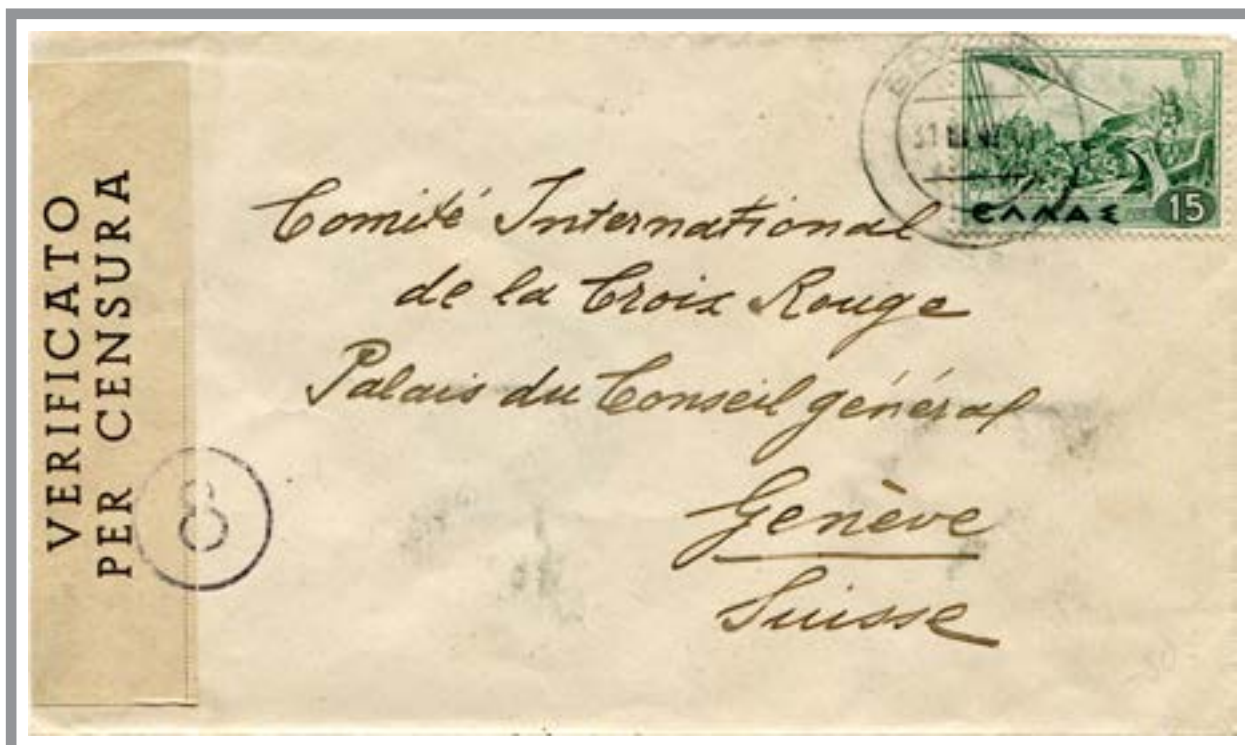 VERIFICATO
PER CENSURA
8
Comité International
de la Croix Rouge
Palais du Conseil général
Genève
Suisse
ΕΛΛΑΣ
15